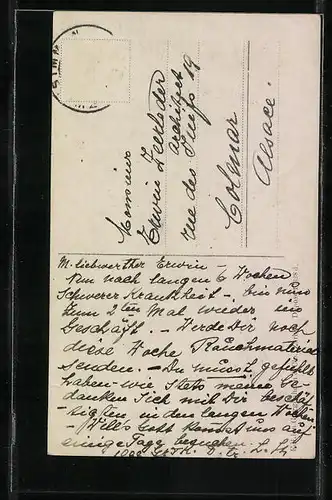 Monsieur
Erwin Zeeleder
Architect
rue des Juifs 19
Colmar
Alsace
M. liebwerther Erwin –
Nun nach langen 6 Wochen
Schwerer Krankheit –, bin nun
zum 2ten Mal wieder im
Geschäft. – Werde Dir noch
diese Woche Rauchmaterial
senden. – Du musst gefühlt
haben – wie stets meine Ge-
danken sich mit Dir beschäf-
tigten in den langen Wochen –
Will's Gott kannst uns auf
einige Tage besuchen.